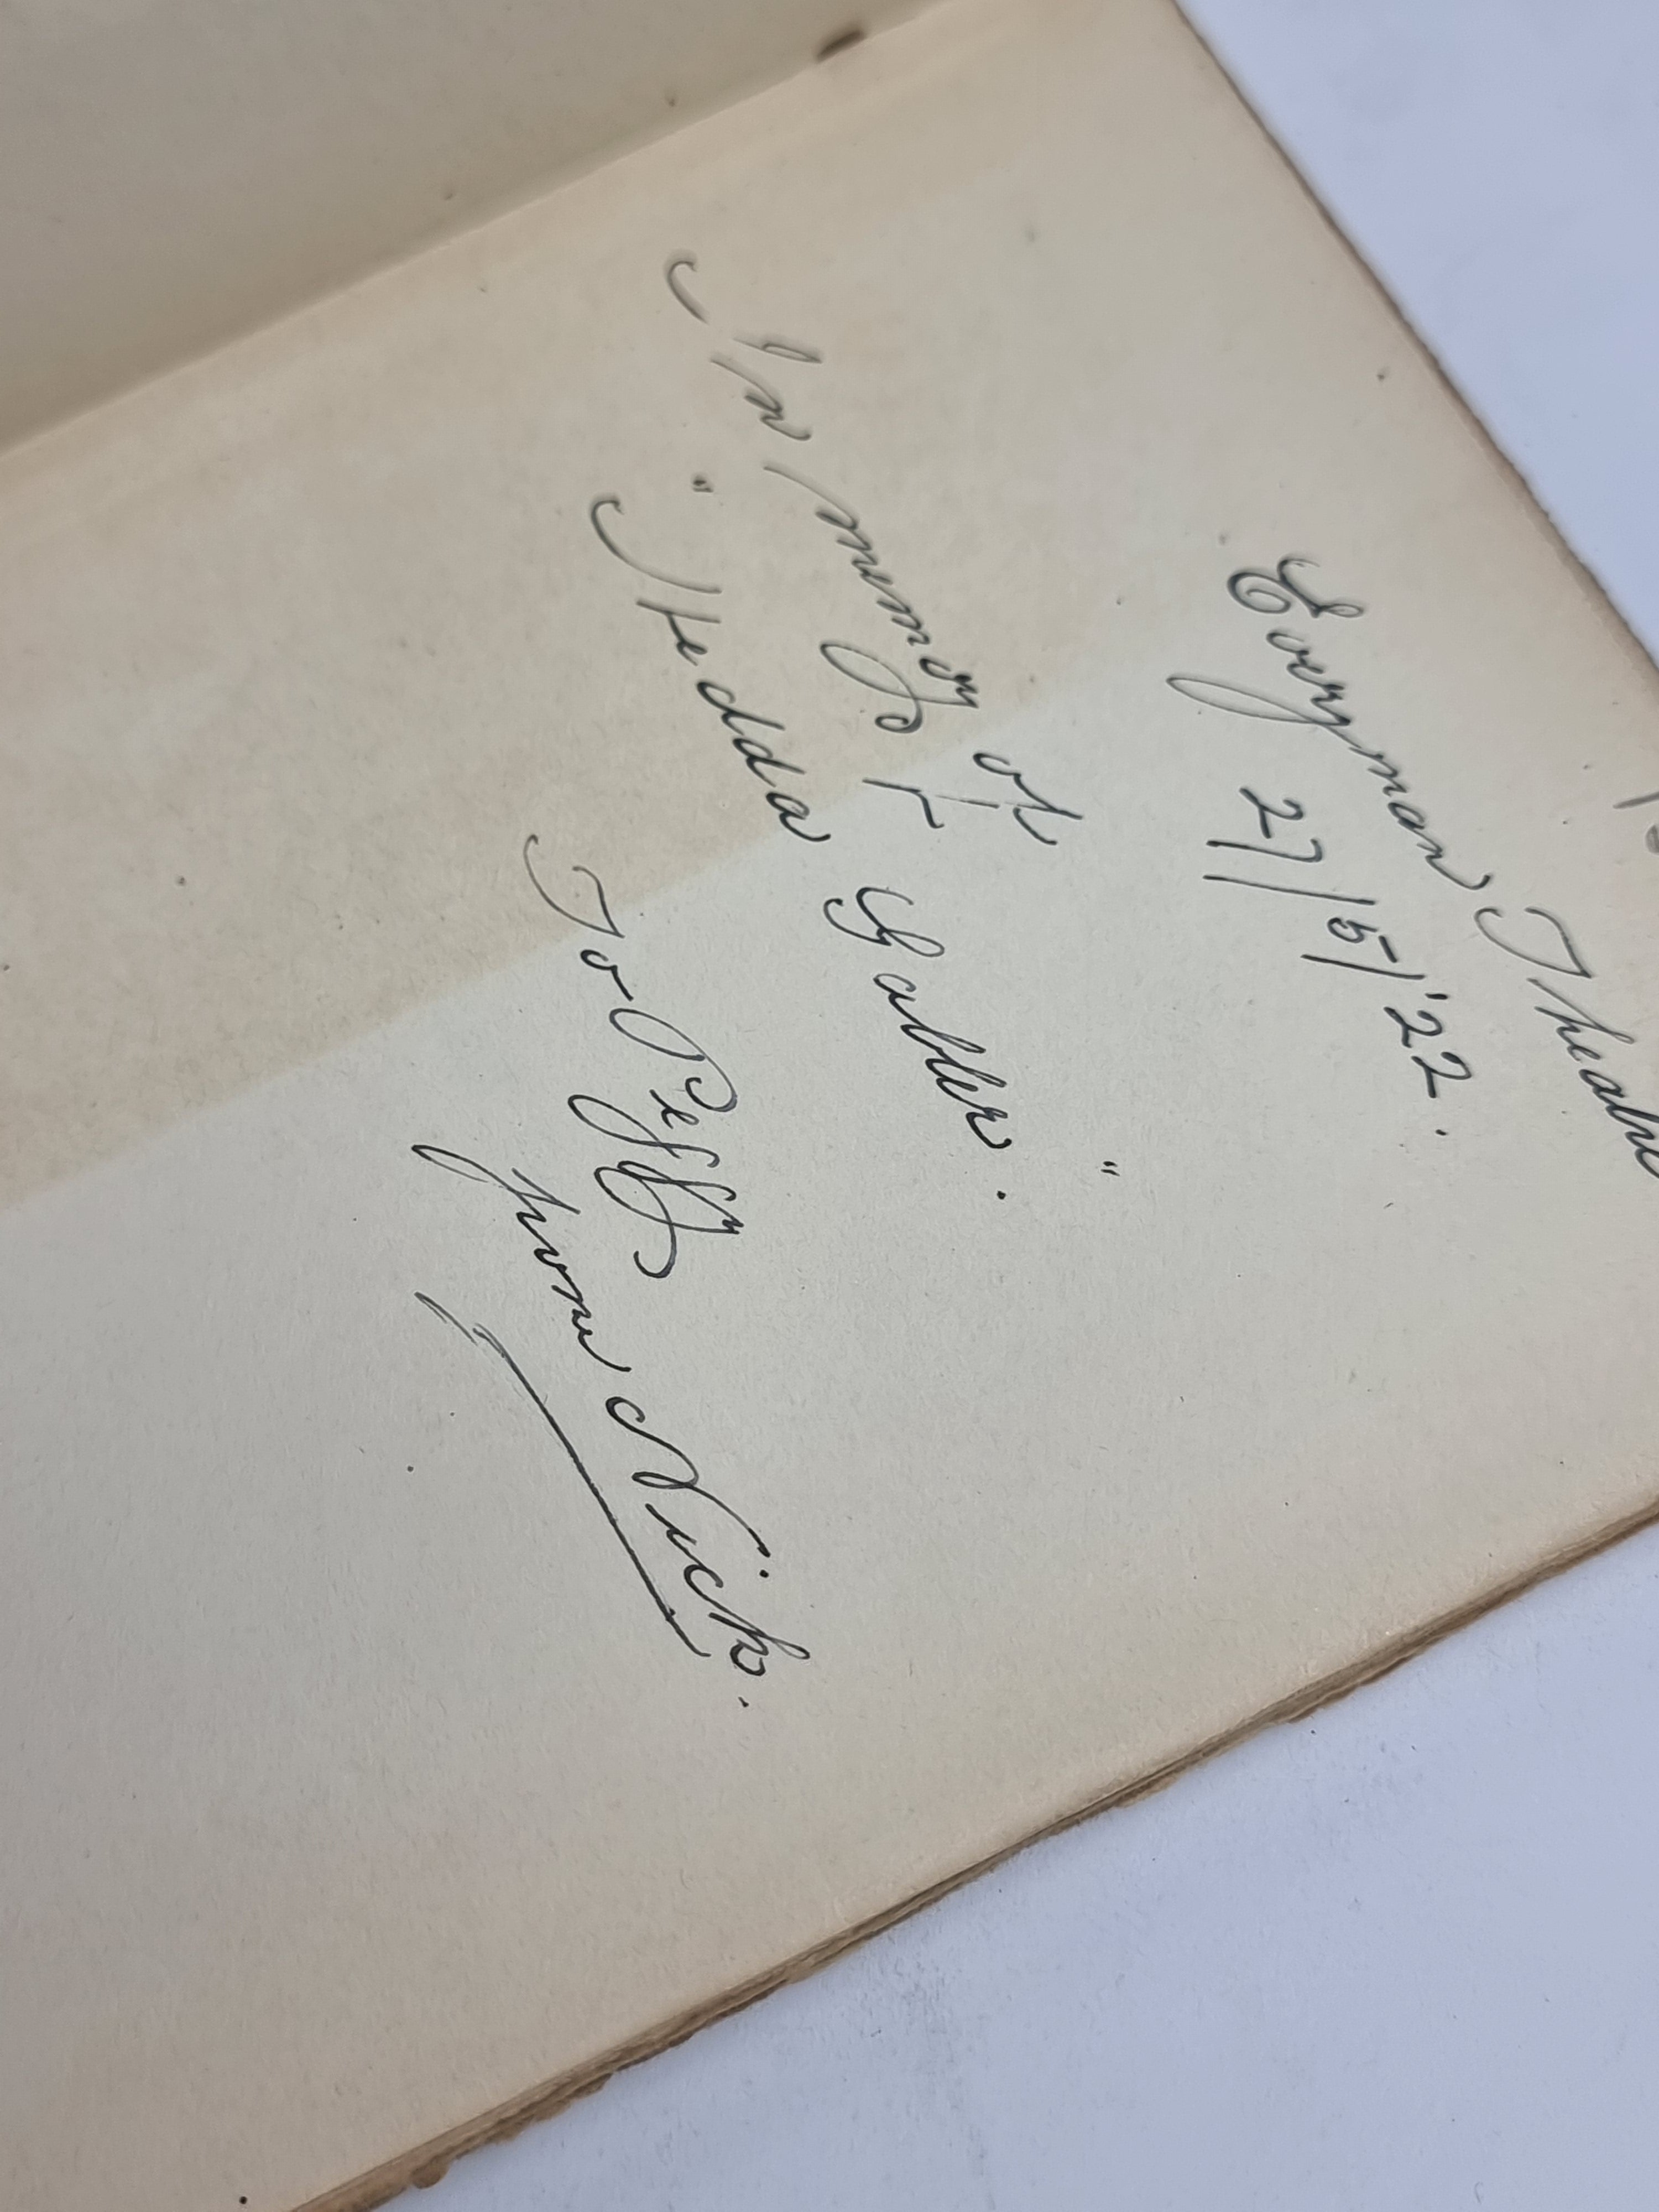 Everyman Theatre
27/5/'22.
In memory of
"Hedda Gabler."
To Peggy
from Nick.